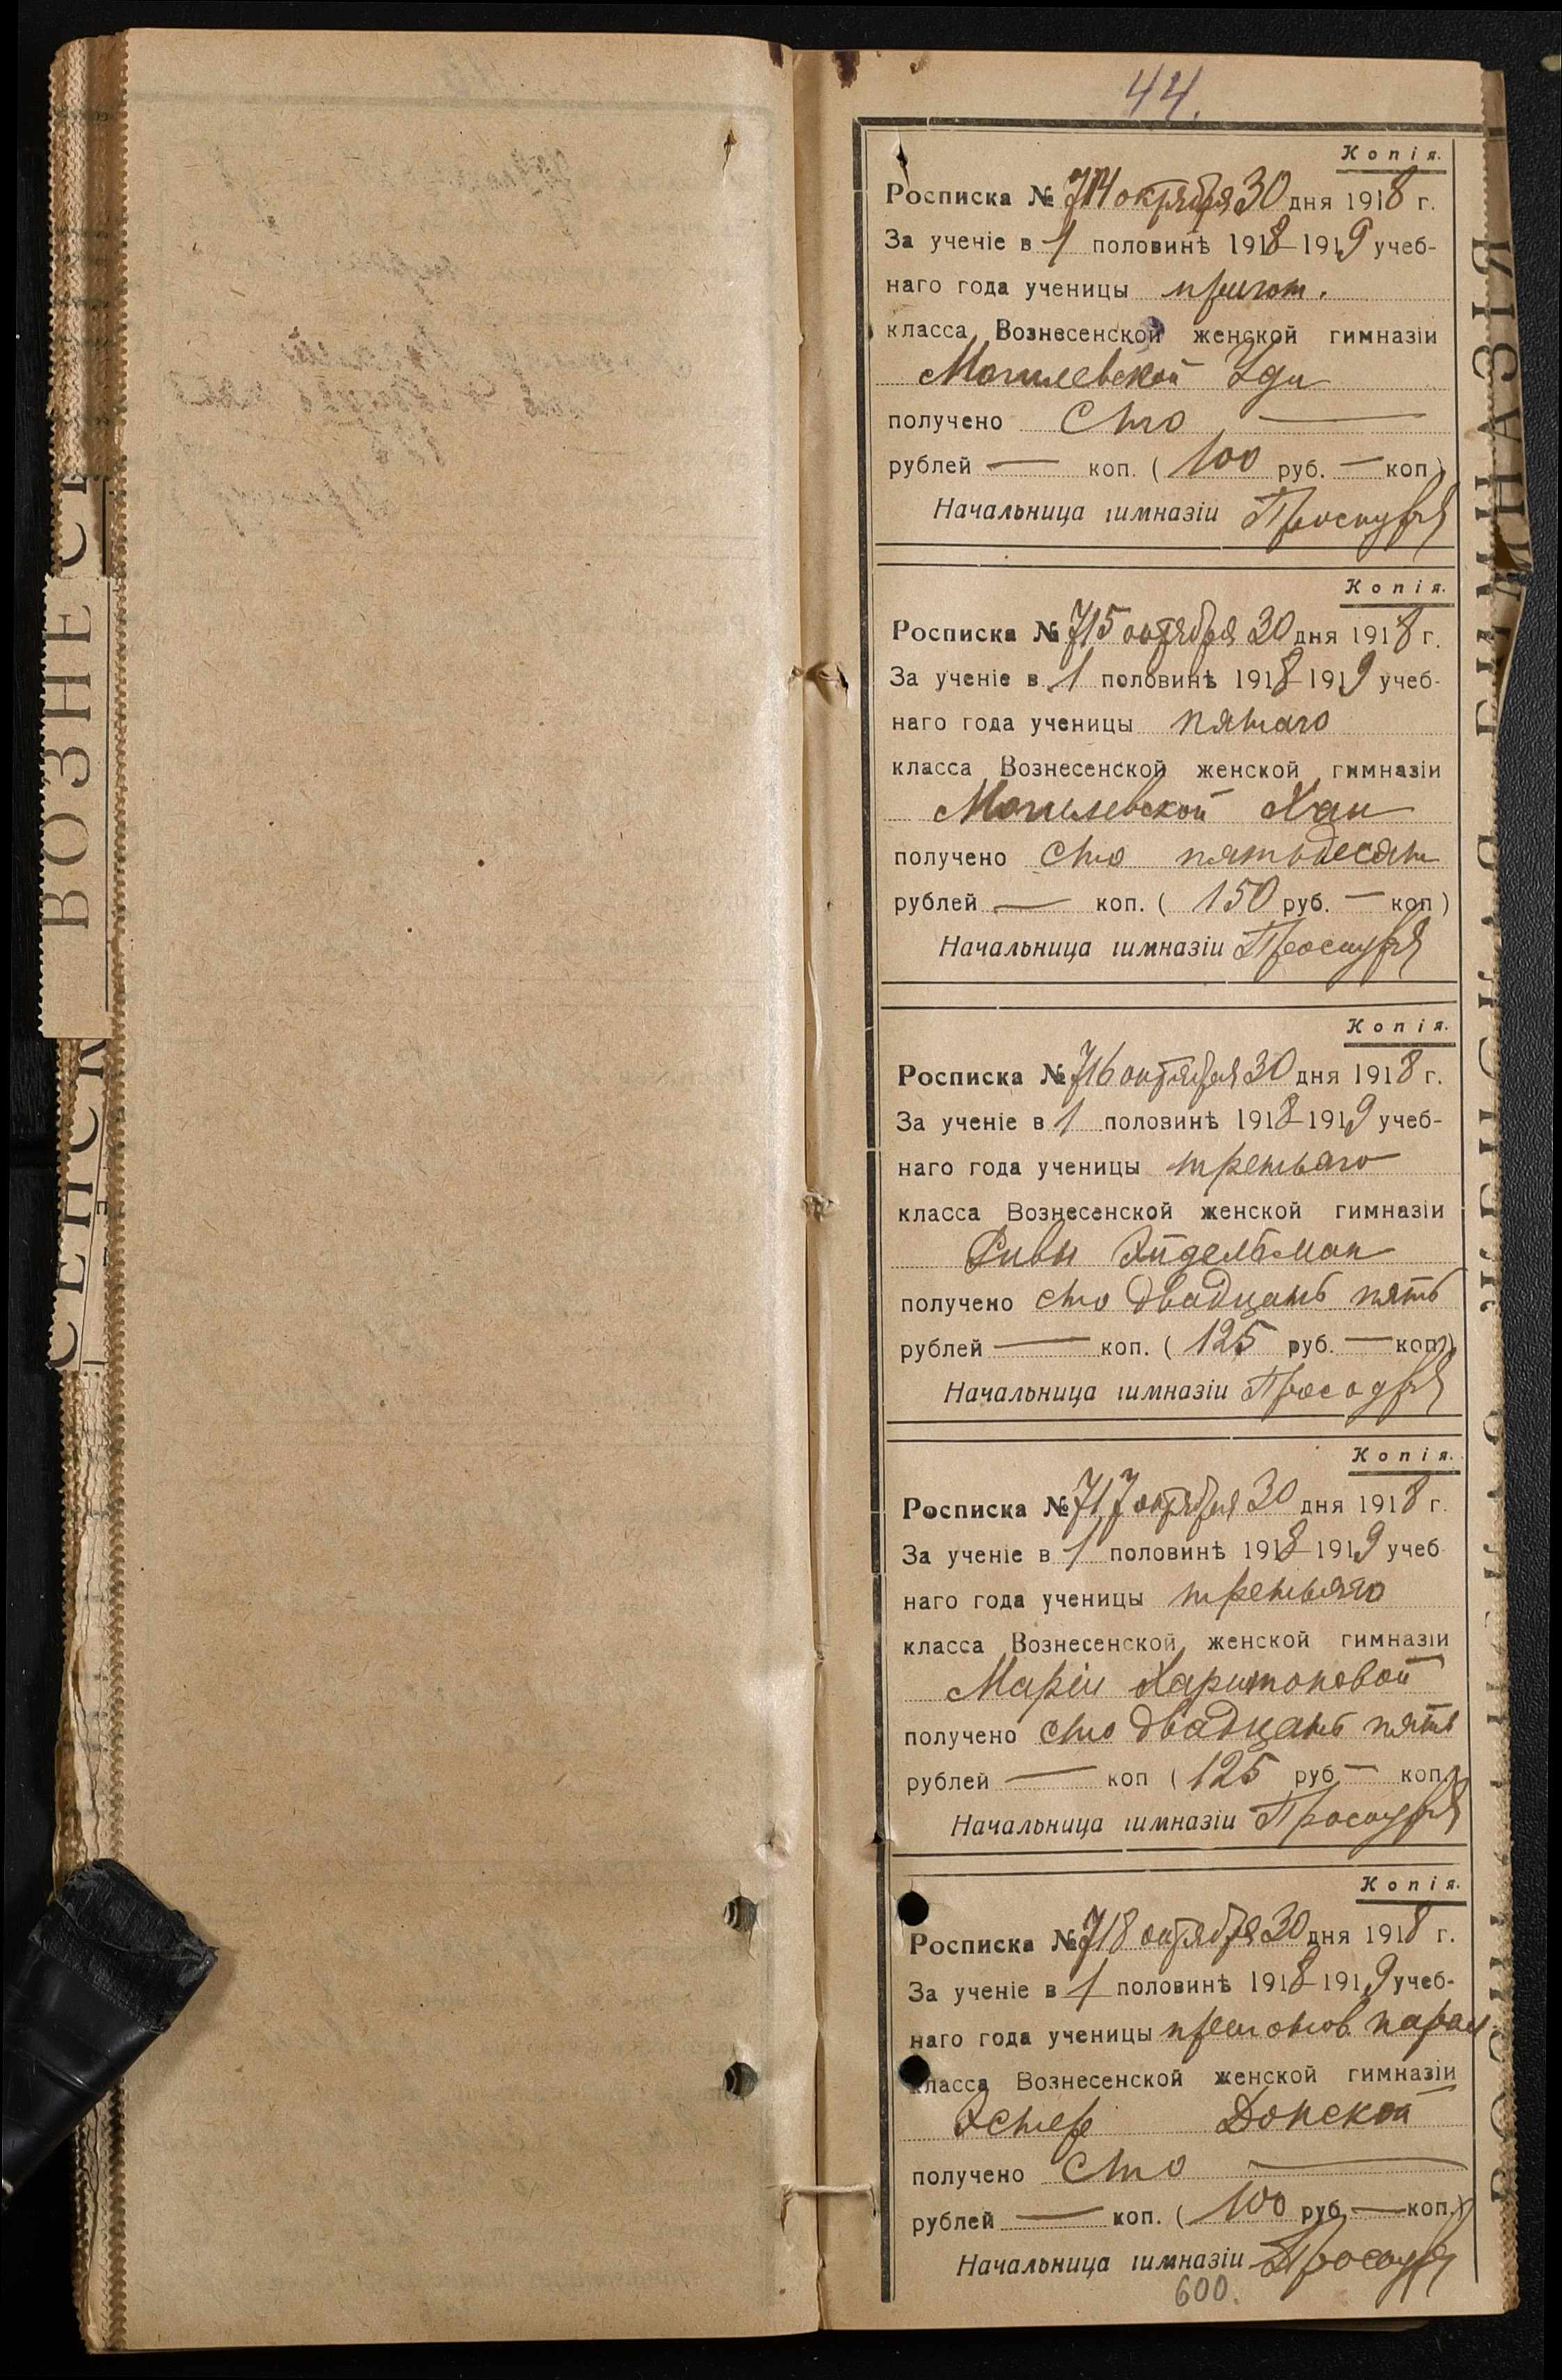 44.
Копія.
Росписка № 714 октября 30 дня 1918 г.
За ученіе в 1 половинѣ 1918-1919 учеб-
наго года ученицы пригот.
класса Вознесенской женской гимназіи
Могилевской Иды
получено Сто —
рублей — коп. ( 100 руб. — коп)
Начальница гимназіи
Копія.
Росписка № 715 октября 30 дня 1918 г.
За ученіе в 1 половинѣ 1918-1919 учеб-
наго года ученицы пятаго
класса Вознесенской женской гимназіи
Могилевской Хаи
получено сто пятьдесят
рублей — коп. ( 150 руб. — коп)
Начальница гимназіи
Копія.
Росписка № 716 октября 30 дня 1918 г.
За ученіе в 1 половинѣ 1918-1919 учеб-
наго года ученицы третьяго
класса Вознесенской женской гимназіи
Ривы Эйдельман
получено сто двадцать пять
рублей — коп. ( 125 руб. — коп)
Начальница гимназіи
Копія.
Росписка № 717 октября 30 дня 1918 г.
За ученіе в 1 половинѣ 1918-1919 учеб
наго года ученицы третьяго
класса Вознесенской женской гимназіи
Маріи Харитоновой
получено сто двадцать пять
рублей — коп ( 125 руб — коп.)
Начальница гимназіи
Копія.
Росписка № 718 октября 30 дня 1918 г.
За ученіе в 1 половинѣ 1918-1919 учеб-
наго года ученицы
класса Вознесенской женской гимназіи
Эстер Донской
получено Сто —
рублей — коп. ( 100 руб — коп.)
Начальница гимназіи
600.
ВОЗНЕСЕ
СЕНСК